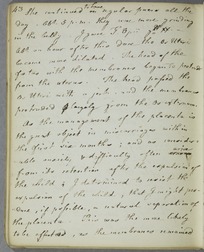 43 She continued in regular pains all the
day. At 3 p.m. they were more grinding
in the belly.
half an hour after this date, the Os Uteri
became more dilated. The head of the
fœtus with the membranes began to protrude
from the uterus. The head passed the
Os Uteri with a jerk, and the membranes
protruded largely from the Os externum.
As the management of the placenta is
the great object in miscarriages within
the first six months; and as considerable
anxiety & difficulty often arise
from its retention after the expulsion of
the child, I determined to resist the
expulsion of the child, & that I might procure,
if possible, a natural separation of
the placenta. This was the more likely
to be effected, as the membranes remained